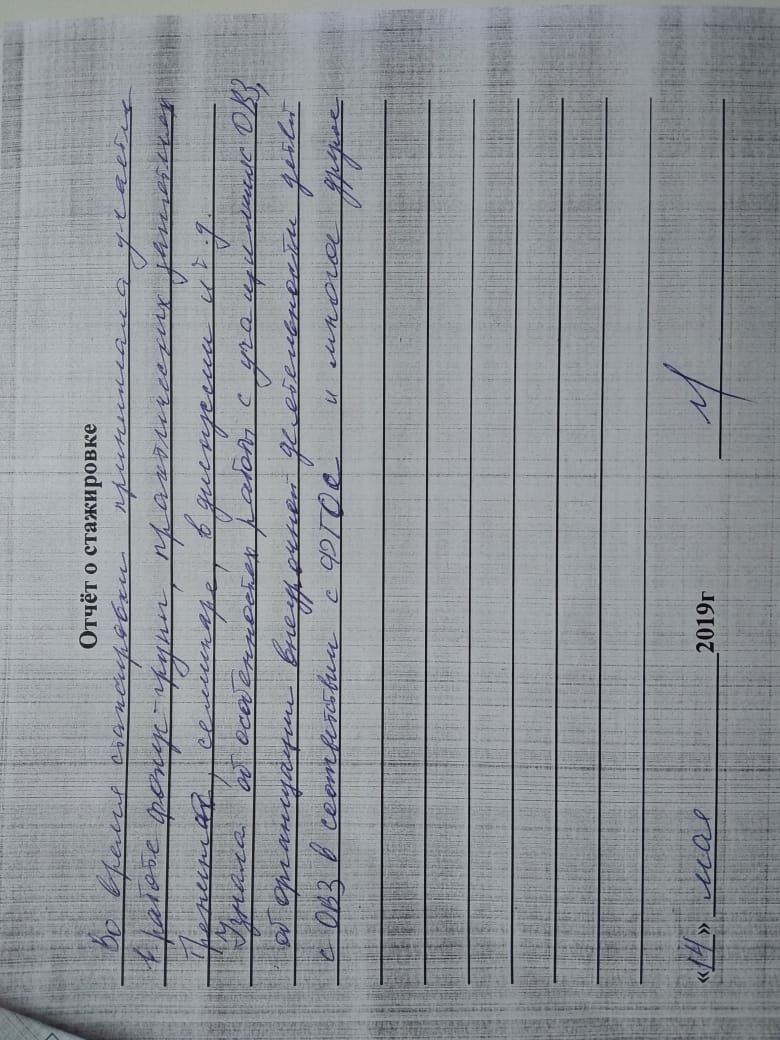 Отчёт о стажировке
Во время стажировки принимала участие
в работе фокус-групп, практических занятиях
Тренингах, семинаре, в дискуссии и т.д.
Узнала об особенностях работы с учащимися с ОВЗ,
об организации внеурочной деятельности детей
с ОВЗ в соответствии с ФГОС и многое другое
«14» мая 2019г